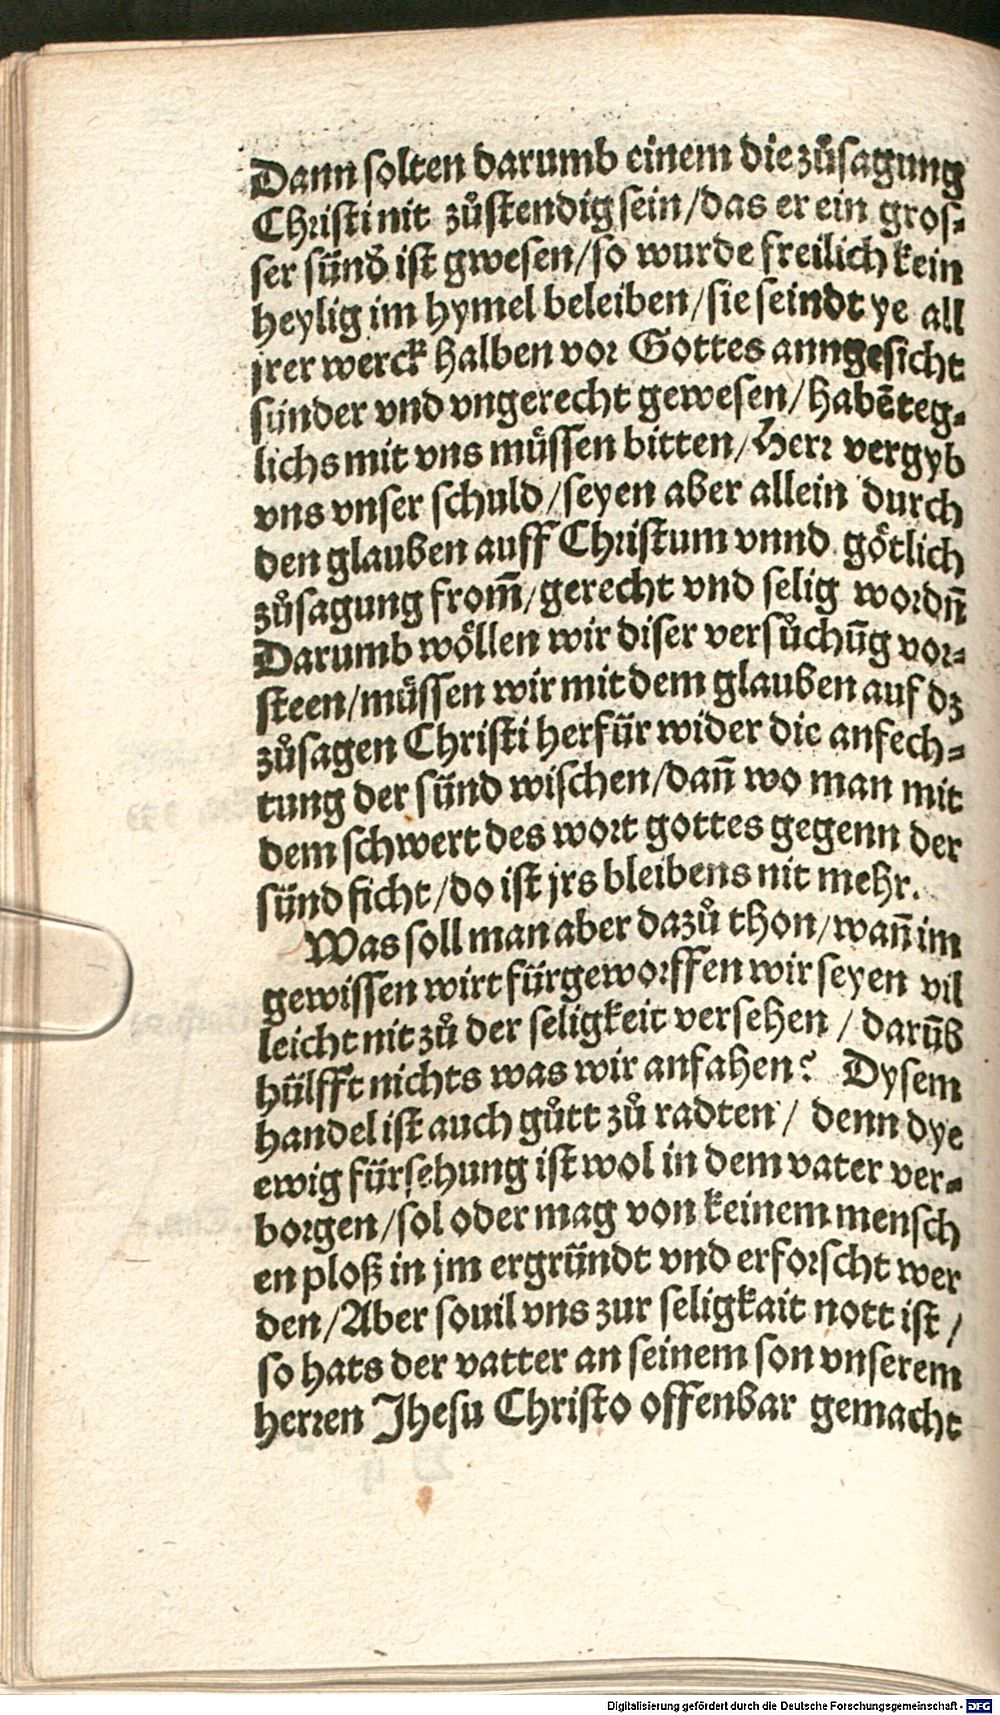 Dann solten darumb einem die zůsagung
Christi nit zůstendig sein/das er ein gros⸗
ser sünd̕ ist gwesen/so wurde freilich kein
heylig im hymel beleiben/sie seindt ye all
jrer werck halben vor Gottes anngesicht
sünder vnd vngerecht gewesen/habē teg⸗
lichs mit vns müssen bitten/Herr vergyb
vns vnser schuld/seyen aber allein durch
den glauben auff Christum vnnd götlich
zůsagung from̄/gerecht vnd selig wordn̄
Darumb wöllen wir diser versůchūg vor⸗
steen/müssen wir mit dem glauben auf dz
zůsagen Christi herfür wider die anfech⸗
tung der sünd wischen/dan̄ wo man mit
dem schwert des wort gottes gegenn der
sünd ficht/do ist jrs bleibens nit mehr.
Was soll man aber dazů thon/wan̄ im
gewissen wirt fürgeworffen wir seyen vil
leicht nit zů der seligkeit versehen / darūb
hülfft nichts was wir anfahen? Dysem
handel ist auch gůtt zů radten / denn dye
ewig fürsehung ist wol in dem vater ver⸗
borgen/sol oder mag von keinem mensch
en ploß in jm ergründt vnd erforscht wer
den/Aber souil vns zur seligkait nott ist /
so hats der vatter an seinem son vnserem
herren Jhesu Christo offenbar gemacht
Digitalisierung gefördert durch die Deutsche Forschungsgemeinschaft - DFG